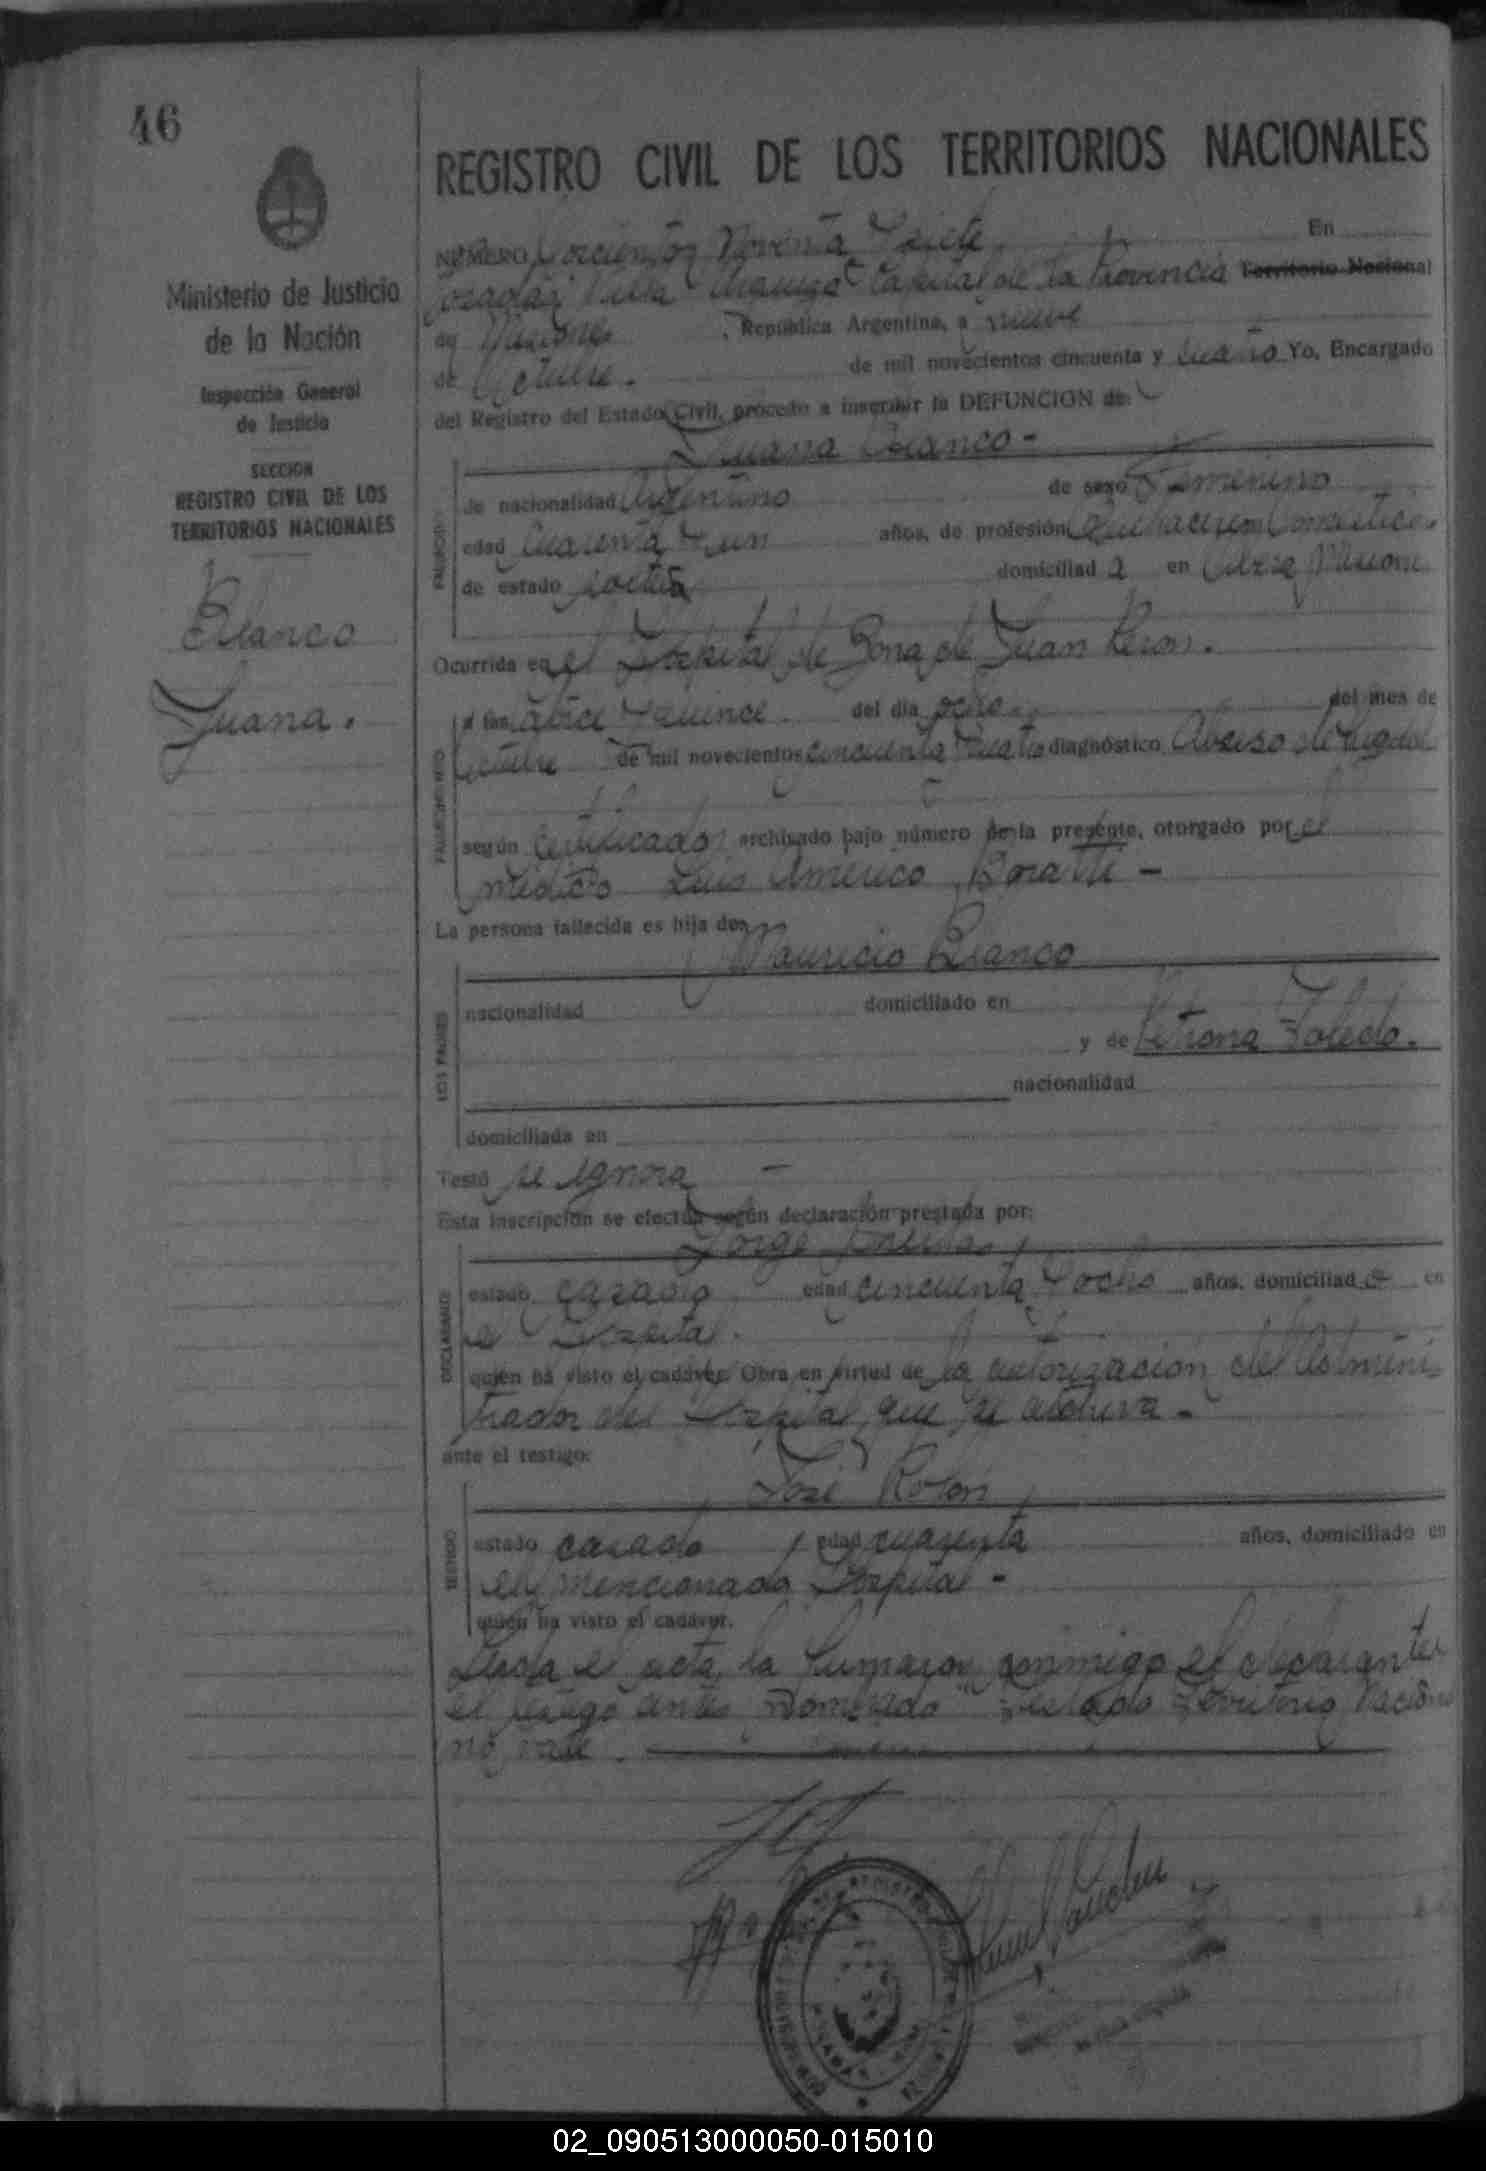 46
REGISTRO CIVIL DE LOS TERRITORIOS NACIONALES
Ministerio de Justicia
de la Nación
Inspección General
de Justicia
SECCION
REGISTRO CIVIL DE LOS
TERRITORIOS NACIONALES
Blanco
Juana.
NUMERO Noventa Siete En
Capital de la Provincia Territorio Nacional
de Misiones, República Argentina, a nueve
de Octubre. de mil novecientos cincuenta y cuatro Yo, Encargado
del Registro del Estado Civil, procedo a inscribir la DEFUNCION de:
Juana Blanco -
de nacionalidad Argentino de sexo Femenino
edad Cuarenta y un años, de profesión Quehaceres Domésticos.
de estado soltera domiciliad a en Misiones
Ocurrida en el Hospital de Zona de Juan Peron.
a las doce y quince del día ocho del mes de
Octubre de mil novecientos cincuenta y cuatro diagnóstico Abceso de hígado
según Certificado archivado bajo número de la presente, otorgado por el
médico Luis Américo -
La persona fallecida es hija de:
Mauricio Blanco
nacionalidad domiciliado en
y de Petrona Toledo.
nacionalidad
LOS PADRES
domiciliada en
Testó se ignora -
Esta inscripción se efectúa según declaración prestada por:
Jorge
DECLARANTE
estado casado edad cincuenta y ocho años, domiciliad o en
el Hospital.
quien ha visto el cadáver. Obra en virtud de la autorización del Adminis-
trador del Hospital que se archiva. -
ante el testigo:
José Rolon
TESTIGO
estado casado edad cuarenta años, domiciliado en
el mencionado Hospital -
quien ha visto el cadáver.
Leida el acta, la firmaron conmigo el declarante
el testigo antes nombrado Testado Territorio Nacional
no vale.
02_090513000050-015010